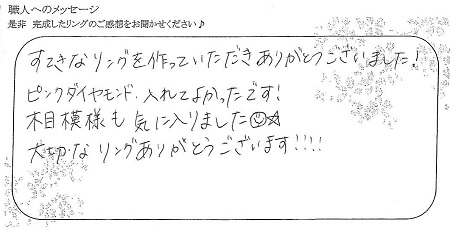 職人へのメッセージ
是非 完成したリングのご感想をお聞かせください♪
すてきなリングを作っていただきありがとうございました!
ピンクダイヤモンド、入れてよかったです!
木目模様も気に入りました☺☆
大切なリングありがとうございます!!!!